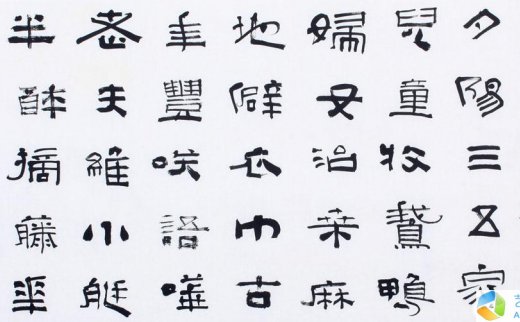 夕陽三五家
兒童牧鵞鴨
婦女治桑麻
地僻衣巾古
年豐咲語嘩
老夫維小艇
半醉摘藤華